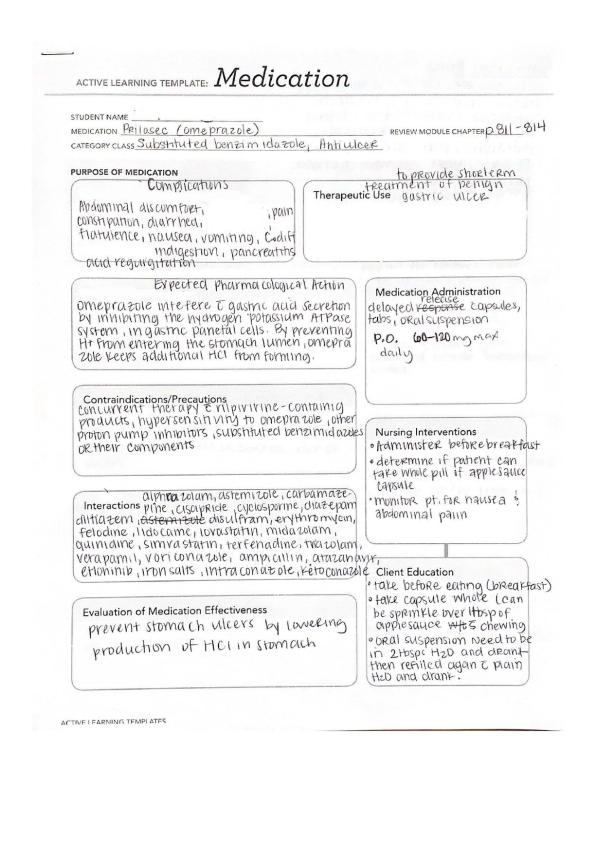 ACTIVE LEARNING TEMPLATE: Medication
STUDENT NAME
MEDICATION Prilosec (omeprazole) REVIEW MODULE CHAPTER p811-814
CATEGORY CLASS Substituted benzimidazole, Antiulcer
PURPOSE OF MEDICATION
Complications
Abdominal discomfort, , pain
constipation, diarrhea,
flatulence, nausea, vomiting, C.diff
indigestion, pancreatitis
acid regurgitation
to provide shorterm
treatment of benign
Therapeutic Use gastric ulcer
Expected Pharmacological Action
omeprazole intefere c̄ gastric acid secretion
by inhibiting the hydrogen potassium ATPase
system, in gastric parietal cells. By preventing
H+ from entering the stomach lumen, omepra
zole keeps additional HCl from forming.
Medication Administration
release
delayed response capsules,
tabs, oral suspension
P.O. 60-120 mg max
daily
Contraindications/Precautions
concurrent therapy c̄ rilpivirine-containig
products, hypersensitiviny to omeprazole, other
proton pump inhibitors, substituted benzimidazoles
or their components
Nursing Interventions
• Administer before breakfast
• determine if patient can
take whole pill if applesauce
capsule
• monitor pt. for nausea &
abdominal pain
alprazolam, astemizole, carbamaze-
Interactions pine, cisapride, cyclosporine, diazepam
diltiazem, astemizole disulfram, erythromycin,
felodine, lidocaine, lovastatin, midazolam,
quinidine, simvastatin, terfenadine, triazolam,
verapamil, voriconazole, ampicillin, atazanavir,
erlotinib, iron salts, intraconazole, ketoconazole
Client Education
• take before eating (breakfast)
• take capsule whole (can
be sprinkle over 1tbsp of
applesauce chewing
• oral suspension need to be
in 2tbsps H₂O and drank
then refilled again c̄ plain
H₂O and drank.
Evaluation of Medication Effectiveness
prevent stomach ulcers by lowering
production of HCl in stomach
ACTIVE LEARNING TEMPLATES